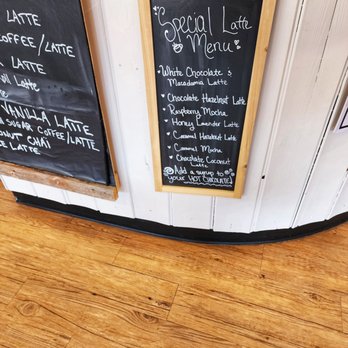 LATTE
COFFEE/LATTE
LATTE
LATTE
VANILLA LATTE
SUGAR COFFEE/LATTE
CHAI
LATTE
Special Latte
Menu
White Chocolate &
Macadamia Latte
Chocolate Hazelnut Latte
Raspberry Mocha
Honey Lavender Latte
Caramel Hazelnut Latte
Caramel Mocha
Chocolate Coconut
Latte
Add a syrup to
your HOT CHOCOLATE!